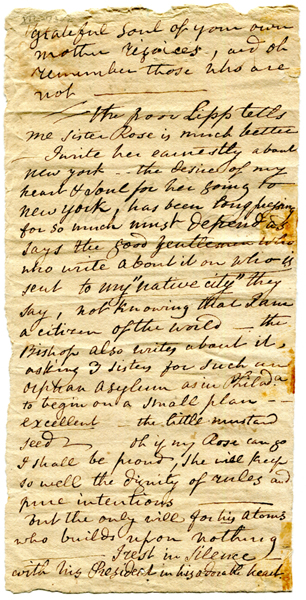 grateful soul of your own
mother rejoices, and oh
remember those who are
not
the poor Lipp tells
me Sister Rose is much better
I write her earnestly about
new york - the desire of my
heart & Soul for her going to
new york, has been long pressing
for so much must depend as
says the good gentlemen
who write about it on who is
sent to my "native city" they
say, not knowing that I am
a citizen of the world - the
Bishop also writes about it,
asking 3 sisters for such an
orphan asylum as in Philad a
to begin on a small plan -
excellent - the little mustard
seed oh if my Rose can go
I shall be proud, She will keep
so well the dignity of rules and
pure intentions
But the only will for his atoms
who builds upon nothing
I rest in Silence
with his President in his